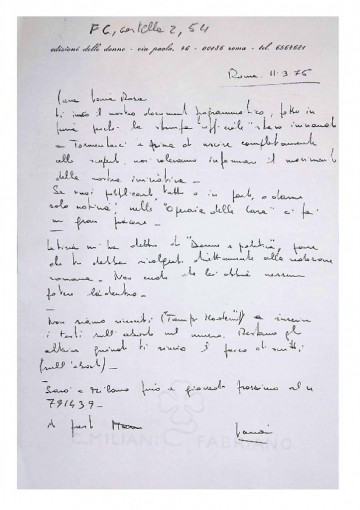 F C, cartella 2, 54
edizioni delle donne - via paola, 46 - 00186 roma - tel. 6561621
Roma 11.3.75
Cara Maria Rosa
ti invio il nostro documento programmatico, fatto in
perché la stampa "ufficiale" stava iniziando
a tormentarci e prima di uscire completamente
allo scoperto noi volevamo informare il movimento
della nostra iniziativa -
Se vuoi pubblicarlo tutto o in parte, o darne
solo notizia, nelle "Operaie della Casa" ci fai
un gran piacere -
mi ha detto di "Donne e politica", pare
che tu debba rivolgerti direttamente alla redazione
romana - Non credo che lei abbia nessun
potere là dentro -
Non siamo riusciti (Tempi Moderni) a inserire
i testi sull'aborto nel numero.
quindi ti invio il pacco di scritti
(sull'aborto) -
Sarò a Milano fino a giovedì prossimo al n
791439 -
A presto
C.MILIANI FABRIANO